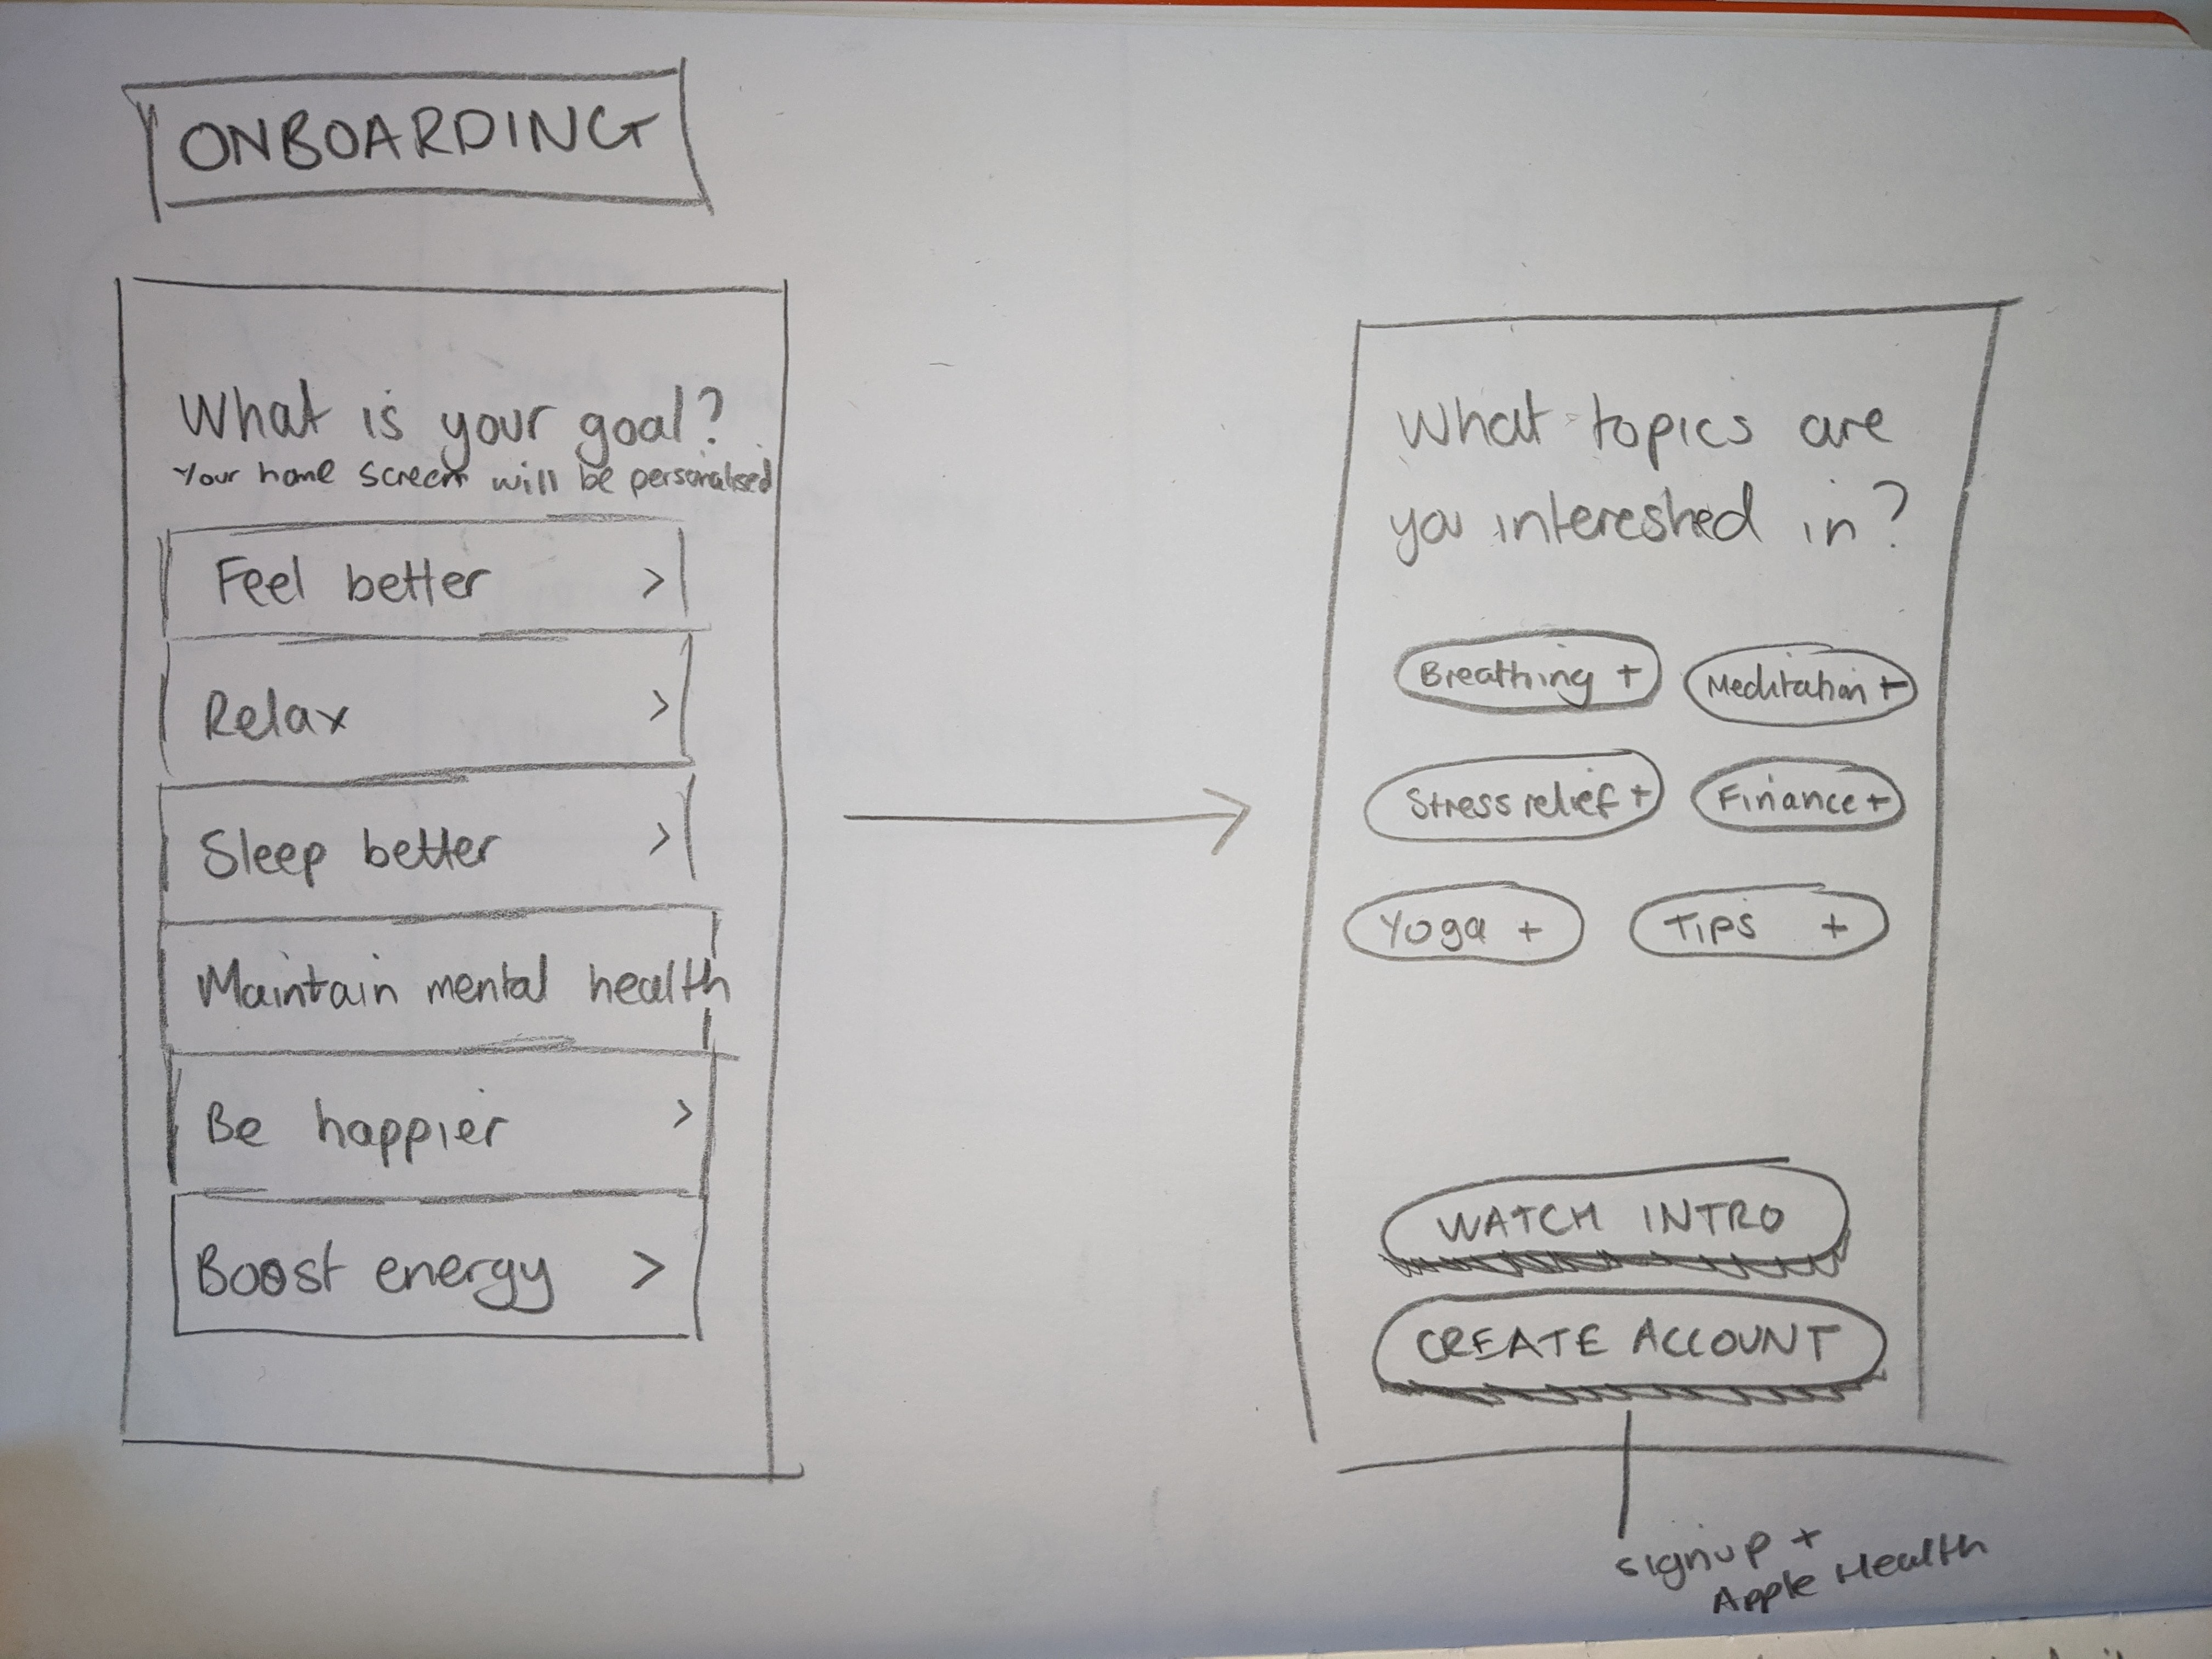 ONBOARDING
What is your goal?
Your home screen will be personalised
Feel better >
Relax >
Sleep better >
Maintain mental health
Be happier >
Boost energy >
What topics are
you intereshed in?
Breathing + Meditation +
Stress relief + Finance +
Yoga + Tips +
WATCH INTRO
CREATE ACCOUNT
signup +
Apple Health